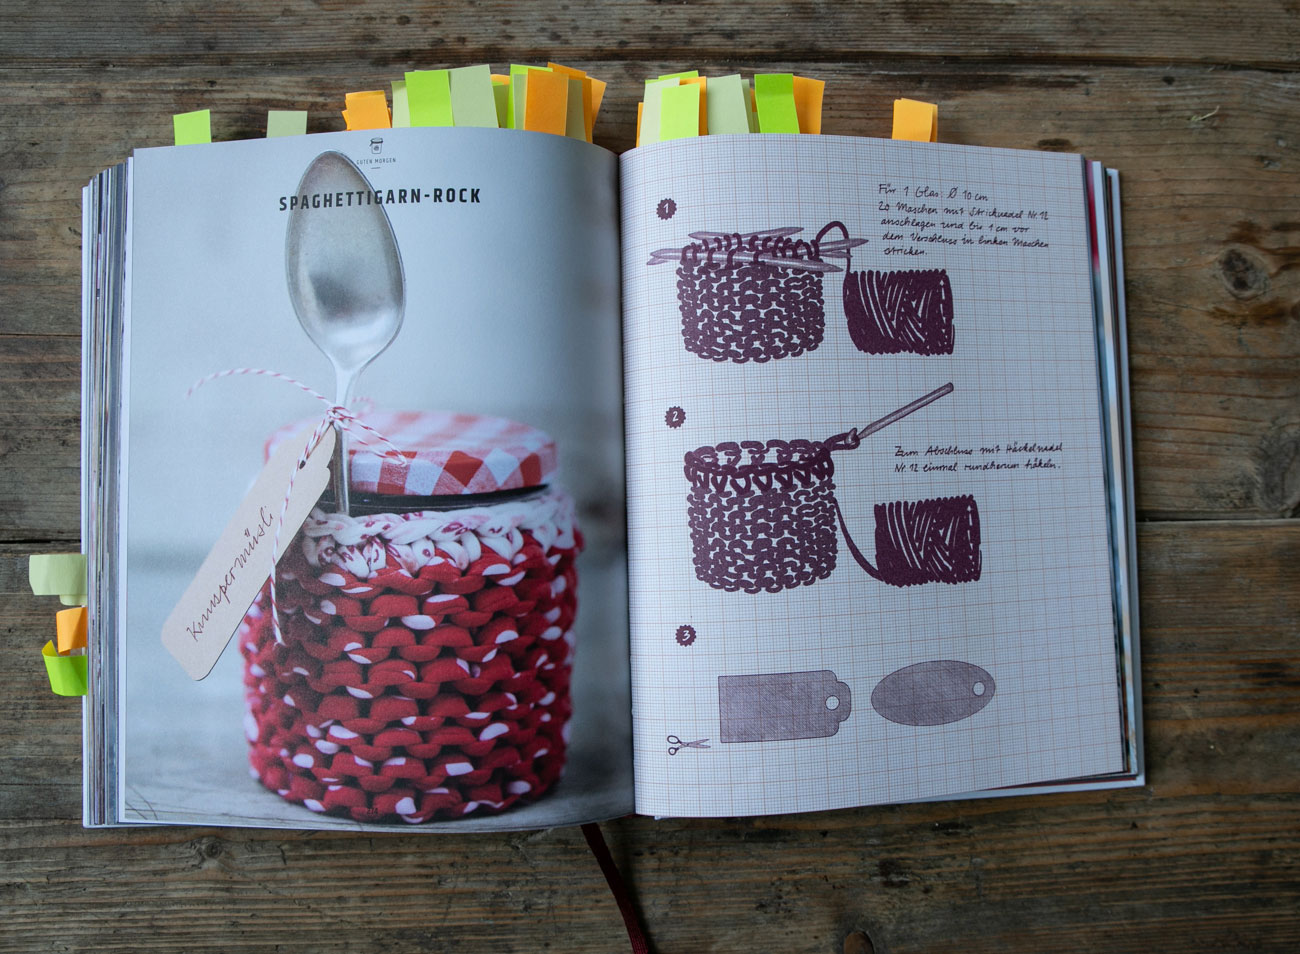 GUTEN MORGEN
SPAGHETTIGARN-ROCK
Knuspermüsli
1
Für 1 Glas: Ø 10 cm
20 Maschen mit Stricknadel Nr. 12
anschlagen und bis 1 cm vor
dem Verschluss in linken Maschen
stricken.
2
Zum Abschluss mit Häkelnadel
Nr. 12 einmal rundherum häkeln.
3